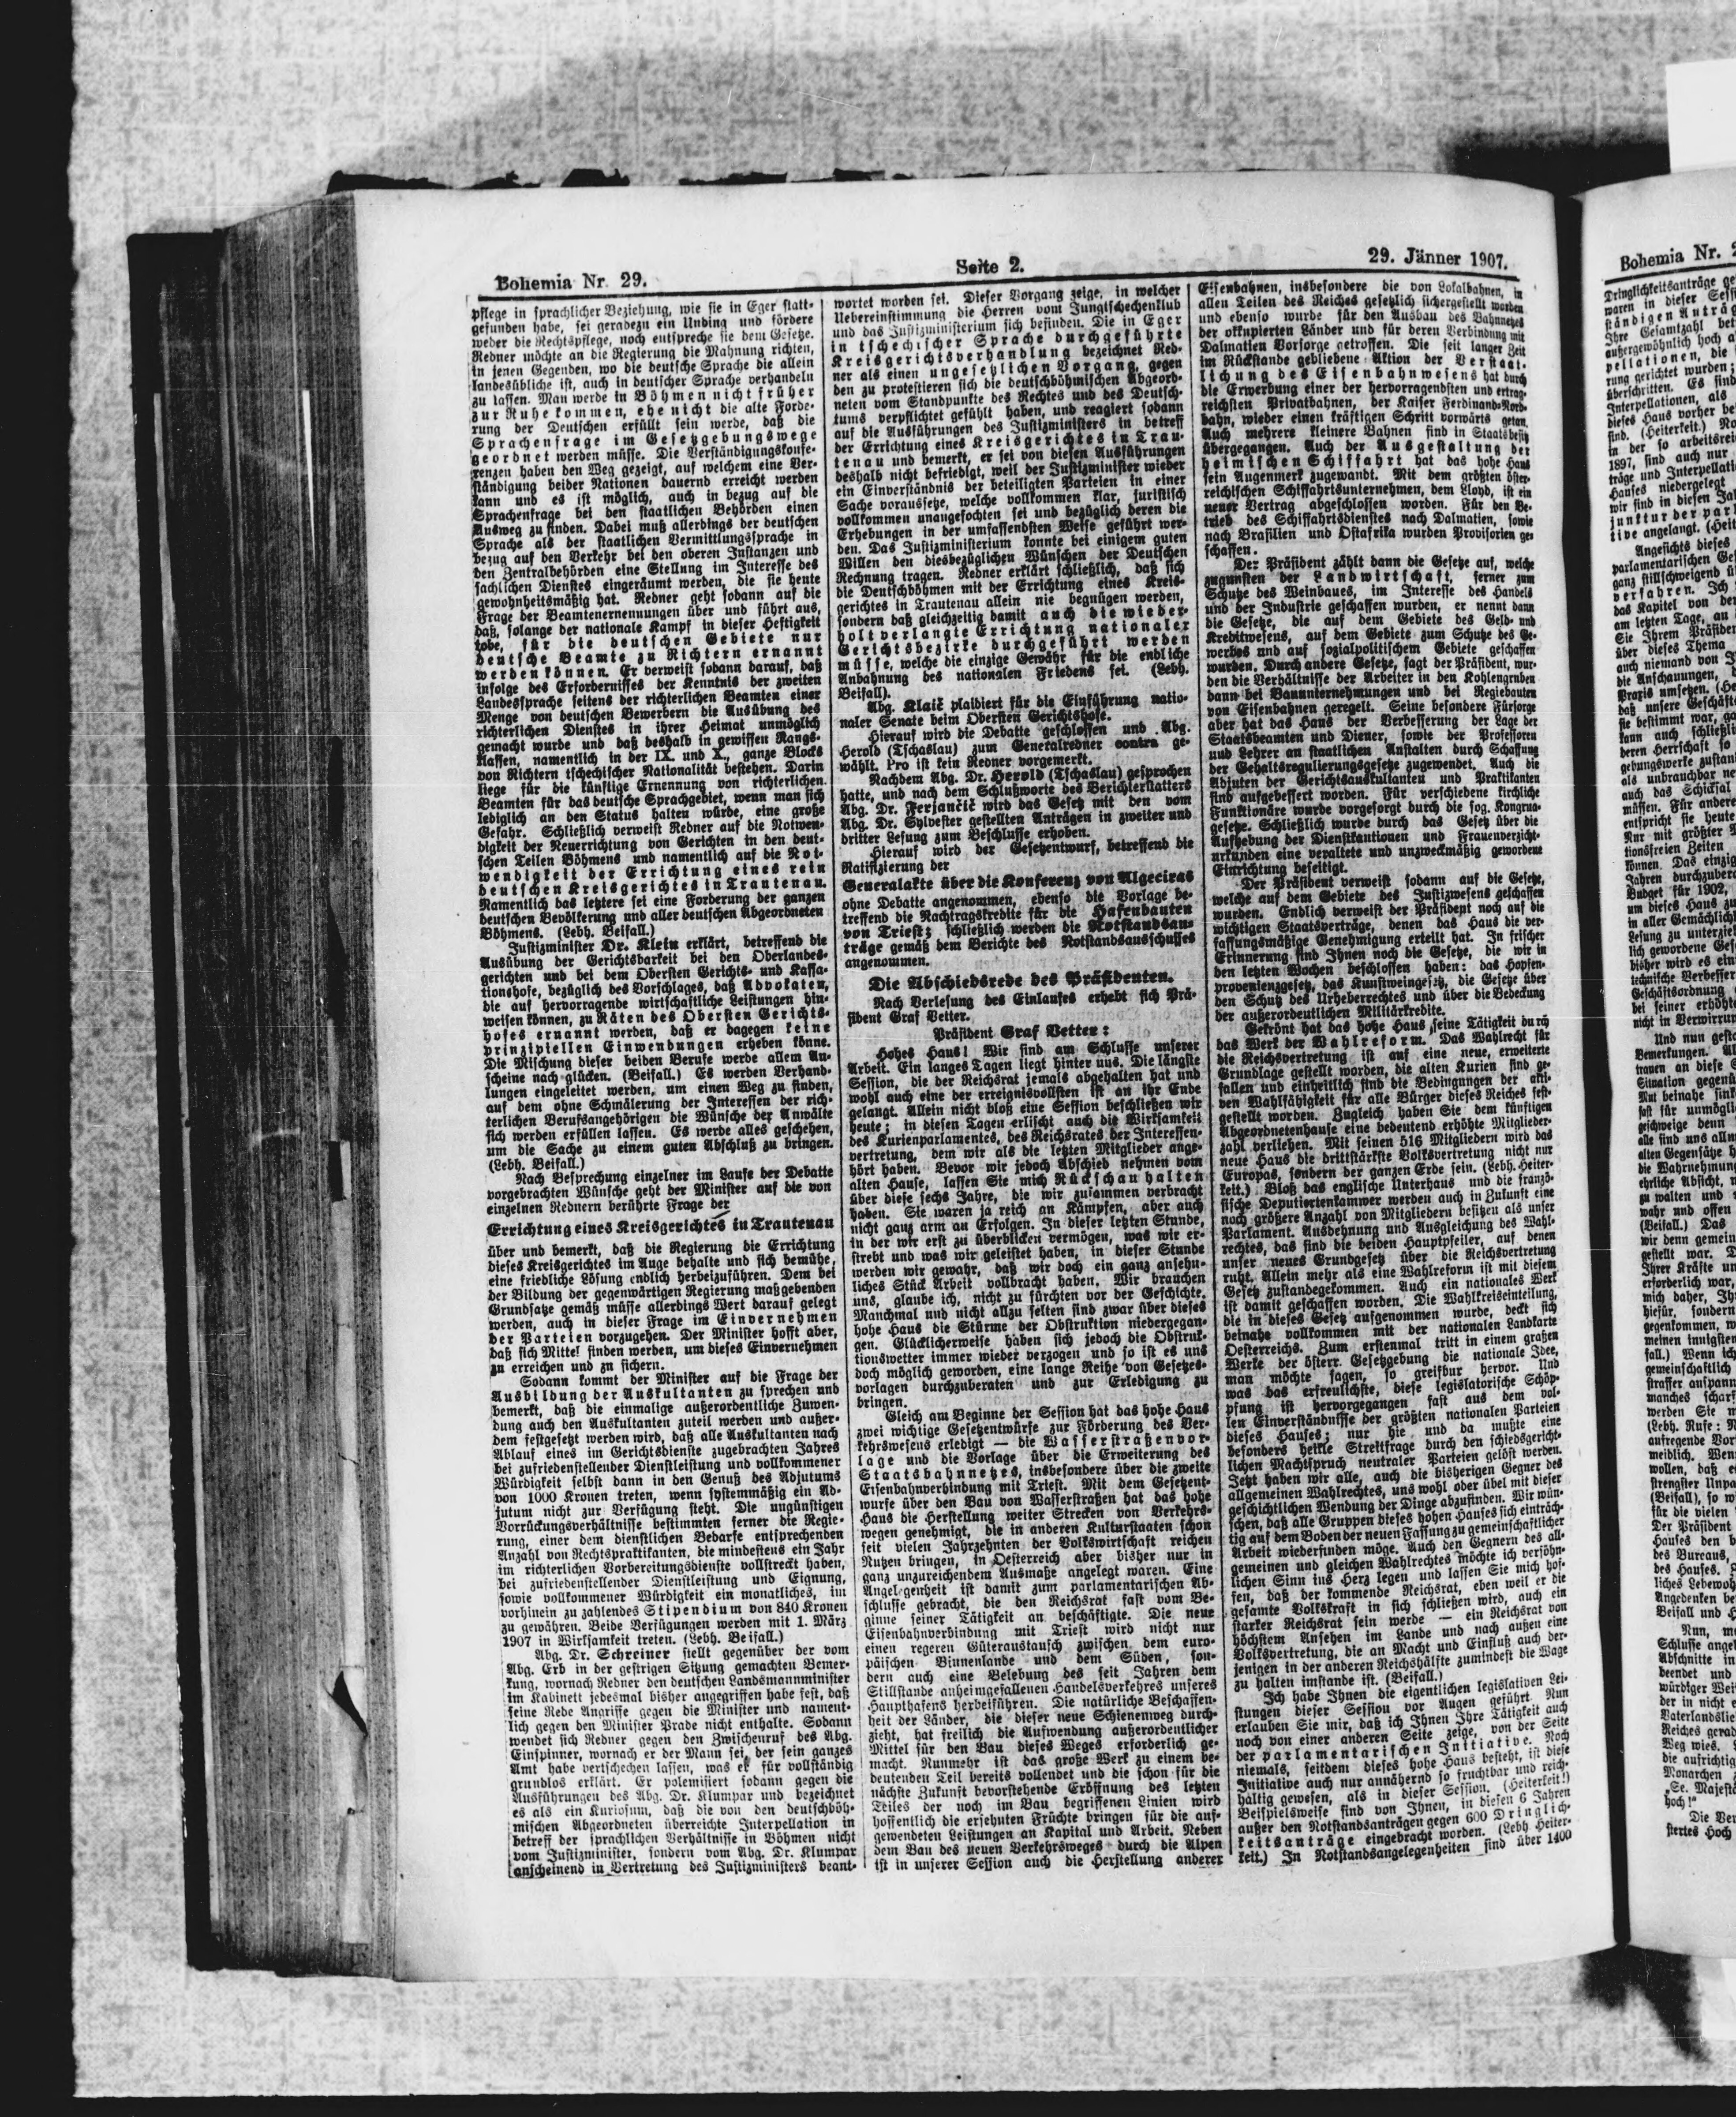 Bohemia Nr. 29.
Seite 2.
29. Jänner 1907.
pflege in sprachlicher Beziehung, wie sie in Eger statt-
gefunden habe, sei geradezu ein Unding und fördere
weder die Rechtspflege, noch entspreche sie dem Gesetze.
Redner möchte an die Regierung die Mahnung richten,
in jenen Gegenden, wo die deutsche Sprache die allein
landesübliche ist, auch in deutscher Sprache verhandeln
zu lassen. Man werde in Böhmen nicht früher
zur Ruhe kommen, ehe nicht die alte Forde-
rung der Deutschen erfüllt sein werde, daß die
Sprachenfrage im Gesetzgebungswege
geordnet werden müsse. Die Verständigungskonfe-
renzen haben den Weg gezeigt, auf welchem eine Ver-
ständigung beider Nationen dauernd erreicht werden
kann und es ist möglich, auch in bezug auf die
Sprachenfrage bei den staatlichen Behörden einen
Ausweg zu finden. Dabei muß allerdings der deutschen
Sprache als der staatlichen Vermittlungssprache in
bezug auf den Verkehr bei den oberen Instanzen und
den Zentralbehörden eine Stellung im Interesse des
sachlichen Dienstes eingeräumt werden, die sie heute
gewohnheitsmäßig hat. Redner geht sodann auf die
Frage der Beamtenernennungen über und führt aus,
daß, solange der nationale Kampf in dieser Heftigkeit
tobe, für die deutschen Gebiete nur
deutsche Beamte zu Richtern ernannt
werden können. Er verweist sodann darauf, daß
infolge des Erfordernisses der Kenntnis der zweiten
Landessprache seitens der richterlichen Beamten einer
Menge von deutschen Bewerbern die Ausübung des
richterlichen Dienstes in ihrer Heimat unmöglich
gemacht wurde und daß deshalb in gewissen Rangs-
klassen, namentlich in der IX. und X., ganze Blocks
von Richtern tschechischer Nationalität bestehen. Darin
liege für die künftige Ernennung von richterlichen
Beamten für das deutsche Sprachgebiet, wenn man sich
lediglich an den Status halten würde, eine große
Gefahr. Schließlich verweist Redner auf die Notwen-
digkeit der Neuerrichtung von Gerichten in den deut-
schen Teilen Böhmens und namentlich auf die Not-
wendigkeit der Errichtung eines rein
deutschen Kreisgerichtes in Trautenau.
Namentlich das letztere sei eine Forderung der ganzen
deutschen Bevölkerung und aller deutschen Abgeordneten
Böhmens. (Lebh. Beifall.)
Justizminister Dr. Klein erklärt, betreffend die
Ausübung der Gerichtsbarkeit bei den Oberlandes-
gerichten und bei dem Obersten Gerichts- und Kassa-
tionshofe, bezüglich des Vorschlages, daß Advokaten,
die auf hervorragende wirtschaftliche Leistungen hin-
weisen können, zu Räten des Obersten Gerichts-
hofes ernannt werden, daß er dagegen keine
prinzipiellen Einwendungen erheben könne.
Die Mischung dieser beiden Berufe werde allem An-
scheine nach glücken. (Beifall.) Es werden Verhand-
lungen eingeleitet werden, um einen Weg zu finden,
auf dem ohne Schmälerung der Interessen der rich-
terlichen Berufsangehörigen die Wünsche der Anwälte
sich werden erfüllen lassen. Es werde alles geschehen,
um die Sache zu einem guten Abschluß zu bringen.
(Lebh. Beifall.)
Nach Besprechung einzelner im Laufe der Debatte
vorgebrachten Wünsche geht der Minister auf die von
einzelnen Rednern berührte Frage der
Errichtung eines Kreisgerichtes in Trautenau
über und bemerkt, daß die Regierung die Errichtung
dieses Kreisgerichtes im Auge behalte und sich bemühe,
eine friedliche Lösung endlich herbeizuführen. Dem bei
der Bildung der gegenwärtigen Regierung maßgebenden
Grundsatze gemäß müsse allerdings Wert darauf gelegt
werden, auch in dieser Frage im Einvernehmen
der Parteien vorzugehen. Der Minister hofft aber,
daß sich Mittel finden werden, um dieses Einvernehmen
zu erreichen und zu sichern.
Sodann kommt der Minister auf die Frage der
Ausbildung der Auskultanten zu sprechen und
bemerkt, daß die einmalige außerordentliche Zuwen-
dung auch den Auskultanten zuteil werden und außer-
dem festgesetzt werden wird, daß alle Auskultanten nach
Ablauf eines im Gerichtsdienste zugebrachten Jahres
bei zufriedenstellender Dienstleistung und vollkommener
Würdigkeit selbst dann in den Genuß des Adjutums
von 1000 Kronen treten, wenn systemmäßig ein Ad-
jutum nicht zur Verfügung steht. Die ungünstigen
Vorrückungsverhältnisse bestimmten ferner die Regie-
rung, einer dem dienstlichen Bedarfe entsprechenden
Anzahl von Rechtspraktikanten, die mindestens ein Jahr
im richterlichen Vorbereitungsdienste vollstreckt haben,
bei zufriedenstellender Dienstleistung und Eignung,
sowie vollkommener Würdigkeit ein monatliches, im
vorhinein zu zahlendes Stipendium von 840 Kronen
zu gewähren. Beide Verfügungen werden mit 1. März
1907 in Wirksamkeit treten. (Lebh. Beifall.)
Abg. Dr. Schreiner stellt gegenüber der vom
Abg. Erb in der gestrigen Sitzung gemachten Bemer-
kung, wornach Redner den deutschen Landsmannminister
im Kabinett jedesmal bisher angegriffen habe fest, daß
seine Rede Angriffe gegen die Minister und nament-
lich gegen den Minister Prade nicht enthalte. Sodann
wendet sich Redner gegen den Zwischenruf des Abg.
Einspinner, wornach er der Mann sei, der sein ganzes
Amt habe vertschechen lassen, was er für vollständig
grundlos erklärt. Er polemisiert sodann gegen die
Ausführungen des Abg. Dr. Klumpar und bezeichnet
es als ein Kuriosum, daß die von den deutschböh-
mischen Abgeordneten überreichte Interpellation in
betreff der sprachlichen Verhältnisse in Böhmen nicht
vom Justizminister, sondern vom Abg. Dr. Klumpar
anscheinend in Vertretung des Justizministers beant-
wortet worden sei. Dieser Vorgang zeige, in welcher
Uebereinstimmung die Herren vom Jungtschechenklub
und das Justizministerium sich befinden. Die in Eger
in tschechischer Sprache durchgeführte
Kreisgerichtsverhandlung bezeichnet Red-
ner als einen ungesetzlichen Vorgang, gegen
den zu protestieren sich die deutschböhmischen Abgeord-
neten vom Standpunkte des Rechtes und des Deutsch-
tums verpflichtet gefühlt haben, und reagiert sodann
auf die Ausführungen des Justizministers in betreff
der Errichtung eines Kreisgerichtes in Trau-
tenau und bemerkt, er sei von diesen Ausführungen
deshalb nicht befriedigt, weil der Justizminister wieder
ein Einverständnis der beteiligten Parteien in einer
Sache voraussetze, welche vollkommen klar, juristisch
vollkommen unangefochten sei und bezüglich deren die
Erhebungen in der umfassendsten Weise geführt wer-
den. Das Justizministerium konnte bei einigem guten
Willen den diesbezüglichen Wünschen der Deutschen
Rechnung tragen. Redner erklärt schließlich, daß sich
die Deutschböhmen mit der Errichtung eines Kreis-
gerichtes in Trautenau allein nie begnügen werden,
sondern daß gleichzeitig damit auch die wieder-
holt verlangte Errichtung nationaler
Gerichtsbezirke durchgeführt werden
müsse, welche die einzige Gewähr für die endliche
Anbahnung des nationalen Friedens sei. (Lebh.
Beifall).
Abg. Klaič plaidiert für die Einführung natio-
naler Senate beim Obersten Gerichtshofe.
Hierauf wird die Debatte geschlossen und Abg.
Herold (Tschaslau) zum Generalredner contra ge-
wählt. Pro ist kein Redner vorgemerkt.
Nachdem Abg. Dr. Herold (Tschaslau) gesprochen
hatte, und nach dem Schlußworte des Berichterstatters
Abg. Dr. Ferjančič wird das Gesetz mit den vom
Abg. Dr. Sylvester gestellten Anträgen in zweiter und
dritter Lesung zum Beschlusse erhoben.
Hierauf wird der Gesetzentwurf, betreffend die
Ratifizierung der
Generalakte über die Konferenz von Algeciras
ohne Debatte angenommen, ebenso die Vorlage be-
treffend die Nachtragskredite für die Hafenbauten
von Triest; schließlich werden die Notstandsan-
träge gemäß dem Berichte des Notstandsausschusses
angenommen.
Die Abschiedsrede des Präsidenten.
Nach Verlesung des Einlaufes erhebt sich Prä-
sident Graf Vetter.
Präsident Graf Vetter:
Hohes Haus! Wir sind am Schlusse unserer
Arbeit. Ein langes Tagen liegt hinter uns. Die längste
Session, die der Reichsrat jemals abgehalten hat und
wohl auch eine der erreignisvollsten ist an ihr Ende
gelangt. Allein nicht bloß eine Session beschließen wir
heute; in diesen Tagen erlischt auch die Wirksamkeit
des Kurienparlamentes, des Reichsrates der Interessen-
vertretung, dem wir als die letzten Mitglieder ange-
hört haben. Bevor wir jedoch Abschied nehmen vom
alten Hause, lassen Sie mich Rückschau halten
über diese sechs Jahre, die wir zusammen verbracht
haben. Sie waren ja reich an Kämpfen, aber auch
nicht ganz arm an Erfolgen. In dieser letzten Stunde,
in der wir erst zu überblicken vermögen, was wir er-
strebt und was wir geleistet haben, in dieser Stunde
werden wir gewahr, daß wir doch ein ganz ansehn-
liches Stück Arbeit vollbracht haben. Wir brauchen
uns, glaube ich, nicht zu fürchten vor der Geschichte.
Manchmal und nicht allzu selten sind zwar über dieses
hohe Haus die Stürme der Obstruktion niedergegan-
gen. Glücklicherweise haben sich jedoch die Obstruk-
tionswetter immer wieder verzogen und so ist es uns
doch möglich geworden, eine lange Reihe von Gesetzes-
vorlagen durchzuberaten und zur Erledigung zu
bringen.
Gleich am Beginne der Session hat das hohe Haus
zwei wichtige Gesetzentwürfe zur Förderung des Ver-
kehrswesens erledigt — die Wasserstraßenvor-
lage und die Vorlage über die Erweiterung des
Staatsbahnnetzes, insbesondere über die zweite
Eisenbahnverbindung mit Triest. Mit dem Gesetzent-
wurfe über den Bau von Wasserstraßen hat das hohe
Haus die Herstellung weiter Strecken von Verkehrs-
wegen genehmigt, die in anderen Kulturstaaten schon
seit vielen Jahrzehnten der Volkswirtschaft reichen
Nutzen bringen, in Oesterreich aber bisher nur in
ganz unzureichendem Ausmaße angelegt waren. Eine
Angelegenheit ist damit zum parlamentarischen Ab-
schlusse gebracht, die den Reichsrat fast vom Be-
ginne seiner Tätigkeit an beschäftigte. Die neue
Eisenbahnverbindung mit Triest wird nicht nur
einen regeren Güteraustausch zwischen dem euro-
päischen Binnenlande und dem Süden, son-
dern auch eine Belebung des seit Jahren dem
Stillstande anheimgefallenen Handelsverkehres unseres
Haupthafens herbeiführen. Die natürliche Beschaffen-
heit der Länder, die dieser neue Schienenweg durch-
zieht, hat freilich die Aufwendung außerordentlicher
Mittel für den Bau dieses Weges erforderlich ge-
macht. Nunmehr ist das große Werk zu einem be-
deutenden Teil bereits vollendet und die schon für die
nächste Zukunft bevorstehende Eröffnung des letzten
Teiles der noch im Bau begriffenen Linien wird
hoffentlich die ersehnten Früchte bringen für die auf-
gewendeten Leistungen an Kapital und Arbeit. Neben
dem Bau des neuen Verkehrsweges durch die Alpen
ist in unserer Session auch die Herstellung anderer
Eisenbahnen, insbesondere die von Lokalbahnen, in
allen Teilen des Reiches gesetzlich sichergestellt worden
und ebenso wurde für den Ausbau des Bahnnetzes
der okkupierten Länder und für deren Verbindung mit
Dalmatien Vorsorge getroffen. Die seit langer Zeit
im Rückstande gebliebene Aktion der Verstaat-
lichung des Eisenbahnwesens hat durch
die Erwerbung einer der hervorragendsten und ertrag-
reichsten Privatbahnen, der Kaiser Ferdinands-Nord-
bahn, wieder einen kräftigen Schritt vorwärts getan.
Auch mehrere kleinere Bahnen sind in Staatsbesitz
übergegangen. Auch der Ausgestaltung der
heimischen Schiffahrt hat das hohe Haus
sein Augenmerk zugewandt. Mit dem größten öster-
reichischen Schiffahrtsunternehmen, dem Lloyd, ist ein
neuer Vertrag abgeschlossen worden. Für den Be-
trieb des Schiffahrtsdienstes nach Dalmatien, sowie
nach Brasilien und Ostafrika wurden Provisorien ge-
schaffen.
Der Präsident zählt dann die Gesetze auf, welche
zugunsten der Landwirtschaft, ferner zum
Schutze des Weinbaues, im Interesse des Handels
und der Industrie geschaffen wurden, er nennt dann
die Gesetze, die auf dem Gebiete des Geld- und
Kreditwesens, auf dem Gebiete zum Schutze des Ge-
werbes und auf sozialpolitischem Gebiete geschaffen
wurden. Durch andere Gesetze, sagt der Präsident, wur-
den die Verhältnisse der Arbeiter in den Kohlengruben
dann bei Bauunternehmungen und bei Regiebauten
von Eisenbahnen geregelt. Seine besondere Fürsorge
aber hat das Haus der Verbesserung der Lage der
Staatsbeamten und Diener, sowie der Professoren
und Lehrer an staatlichen Anstalten durch Schaffung
der Gehaltsregulierungsgesetze zugewendet. Auch die
Adjuten der Gerichtsauskultanten und Praktikanten
sind aufgebessert worden. Für verschiedene kirchliche
Funktionäre wurde vorgesorgt durch die sog. Kongrua-
gesetze. Schließlich wurde durch das Gesetz über die
Aufhebung der Dienstkautionen und Frauenverzicht-
urkunden eine veraltete und unzweckmäßig gewordene
Einrichtung beseitigt.
Der Präsident verweist sodann auf die Gesetze,
welche auf dem Gebiete des Justizwesens geschaffen
wurden. Endlich verweist der Präsident noch auf die
wichtigen Staatsverträge, denen das Haus die ver-
fassungsmäßige Genehmigung erteilt hat. In frischer
Erinnerung sind Ihnen noch die Gesetze, die wir in
den letzten Wochen beschlossen haben: das Hopfen-
provenienzgesetz, das Kunstweingesetz, die Gesetze über
den Schutz des Urheberrechtes und über die Bedeckung
der außerordentlichen Militärkredite.
Gekrönt hat das hohe Haus seine Tätigkeit durch
das Werk der Wahlreform. Das Wahlrecht für
die Reichsvertretung ist auf eine neue, erweiterte
Grundlage gestellt worden, die alten Kurien sind ge-
fallen und einheitlich sind die Bedingungen der akti-
ven Wahlfähigkeit für alle Bürger dieses Reiches fest-
gestellt worden. Zugleich haben Sie dem künftigen
Abgeordnetenhause eine bedeutend erhöhte Mitglieder-
zahl verliehen. Mit seinen 516 Mitgliedern wird das
neue Haus die drittstärkste Volksvertretung nicht nur
Europas, sondern der ganzen Erde sein. (Lebh. Heiter-
keit.) Bloß das englische Unterhaus und die franzö-
sische Deputiertenkammer werden auch in Zukunft eine
noch größere Anzahl von Mitgliedern besitzen als unser
Parlament. Ausdehnung und Ausgleichung des Wahl-
rechtes, das sind die beiden Hauptpfeiler, auf denen
unser neues Grundgesetz über die Reichsvertretung
ruht. Allein mehr als eine Wahlreform ist mit diesem
Gesetz zustandegekommen. Auch ein nationales Werk
ist damit geschaffen worden. Die Wahlkreiseinteilung,
die in dieses Gesetz aufgenommen wurde, deckt sich
beinahe vollkommen mit der nationalen Landkarte
Oesterreichs. Zum erstenmal tritt in einem großen
Werke der österr. Gesetzgebung die nationale Idee,
man möchte sagen, so greifbar hervor. Und
was das erfreulichste, diese legislatorische Schöp-
pfung ist hervorgegangen fast aus dem vol-
len Einverständnisse der größten nationalen Parteien
dieses Hauses; nur hie und da mußte eine
besonders heikle Streitfrage durch den schiedsgericht-
lichen Machtspruch neutraler Parteien gelöst werden.
Jetzt haben wir alle, auch die bisherigen Gegner des
allgemeinen Wahlrechtes, uns wohl oder übel mit dieser
geschichtlichen Wendung der Dinge abzufinden. Wir wün-
schen, daß alle Gruppen dieses hohen Hauses sich einträch-
tig auf dem Boden der neuen Fassung zu gemeinschaftlicher
Arbeit wiederfinden möge. Auch den Gegnern des all-
gemeinen und gleichen Wahlrechtes möchte ich versöhn-
lichen Sinn ins Herz legen und lassen Sie mich hof-
fen, daß der kommende Reichsrat, eben weil er die
gesamte Volkskraft in sich schließen wird, auch ein
starker Reichsrat sein werde — ein Reichsrat von
höchstem Ansehen im Lande und nach außen eine
Volksvertretung, die an Macht und Einfluß auch der-
jenigen in der anderen Reichshälfte zumindest die Wage
zu halten imstande ist. (Beifall.)
Ich habe Ihnen die eigentlichen legislativen Lei-
stungen dieser Session vor Augen geführt. Nun
erlauben Sie mir, daß ich Ihnen Ihre Tätigkeit auch
noch von einer anderen Seite zeige, von der Seite
der parlamentarischen Initiative. Noch
niemals, seitdem dieses hohe Haus besteht, ist diese
Initiative auch nur annähernd so fruchtbar und reich-
hältig gewesen, als in dieser Session. (Heiterkeit!)
Beispielsweise sind von Ihnen, in diesen 6 Jahren
außer den Notstandsanträgen gegen 600 Dringlich-
keitsanträge eingebracht worden. (Lebh. Heiter-
keit.) In Notstandsangelegenheiten sind über 1400
Bohemia Nr.